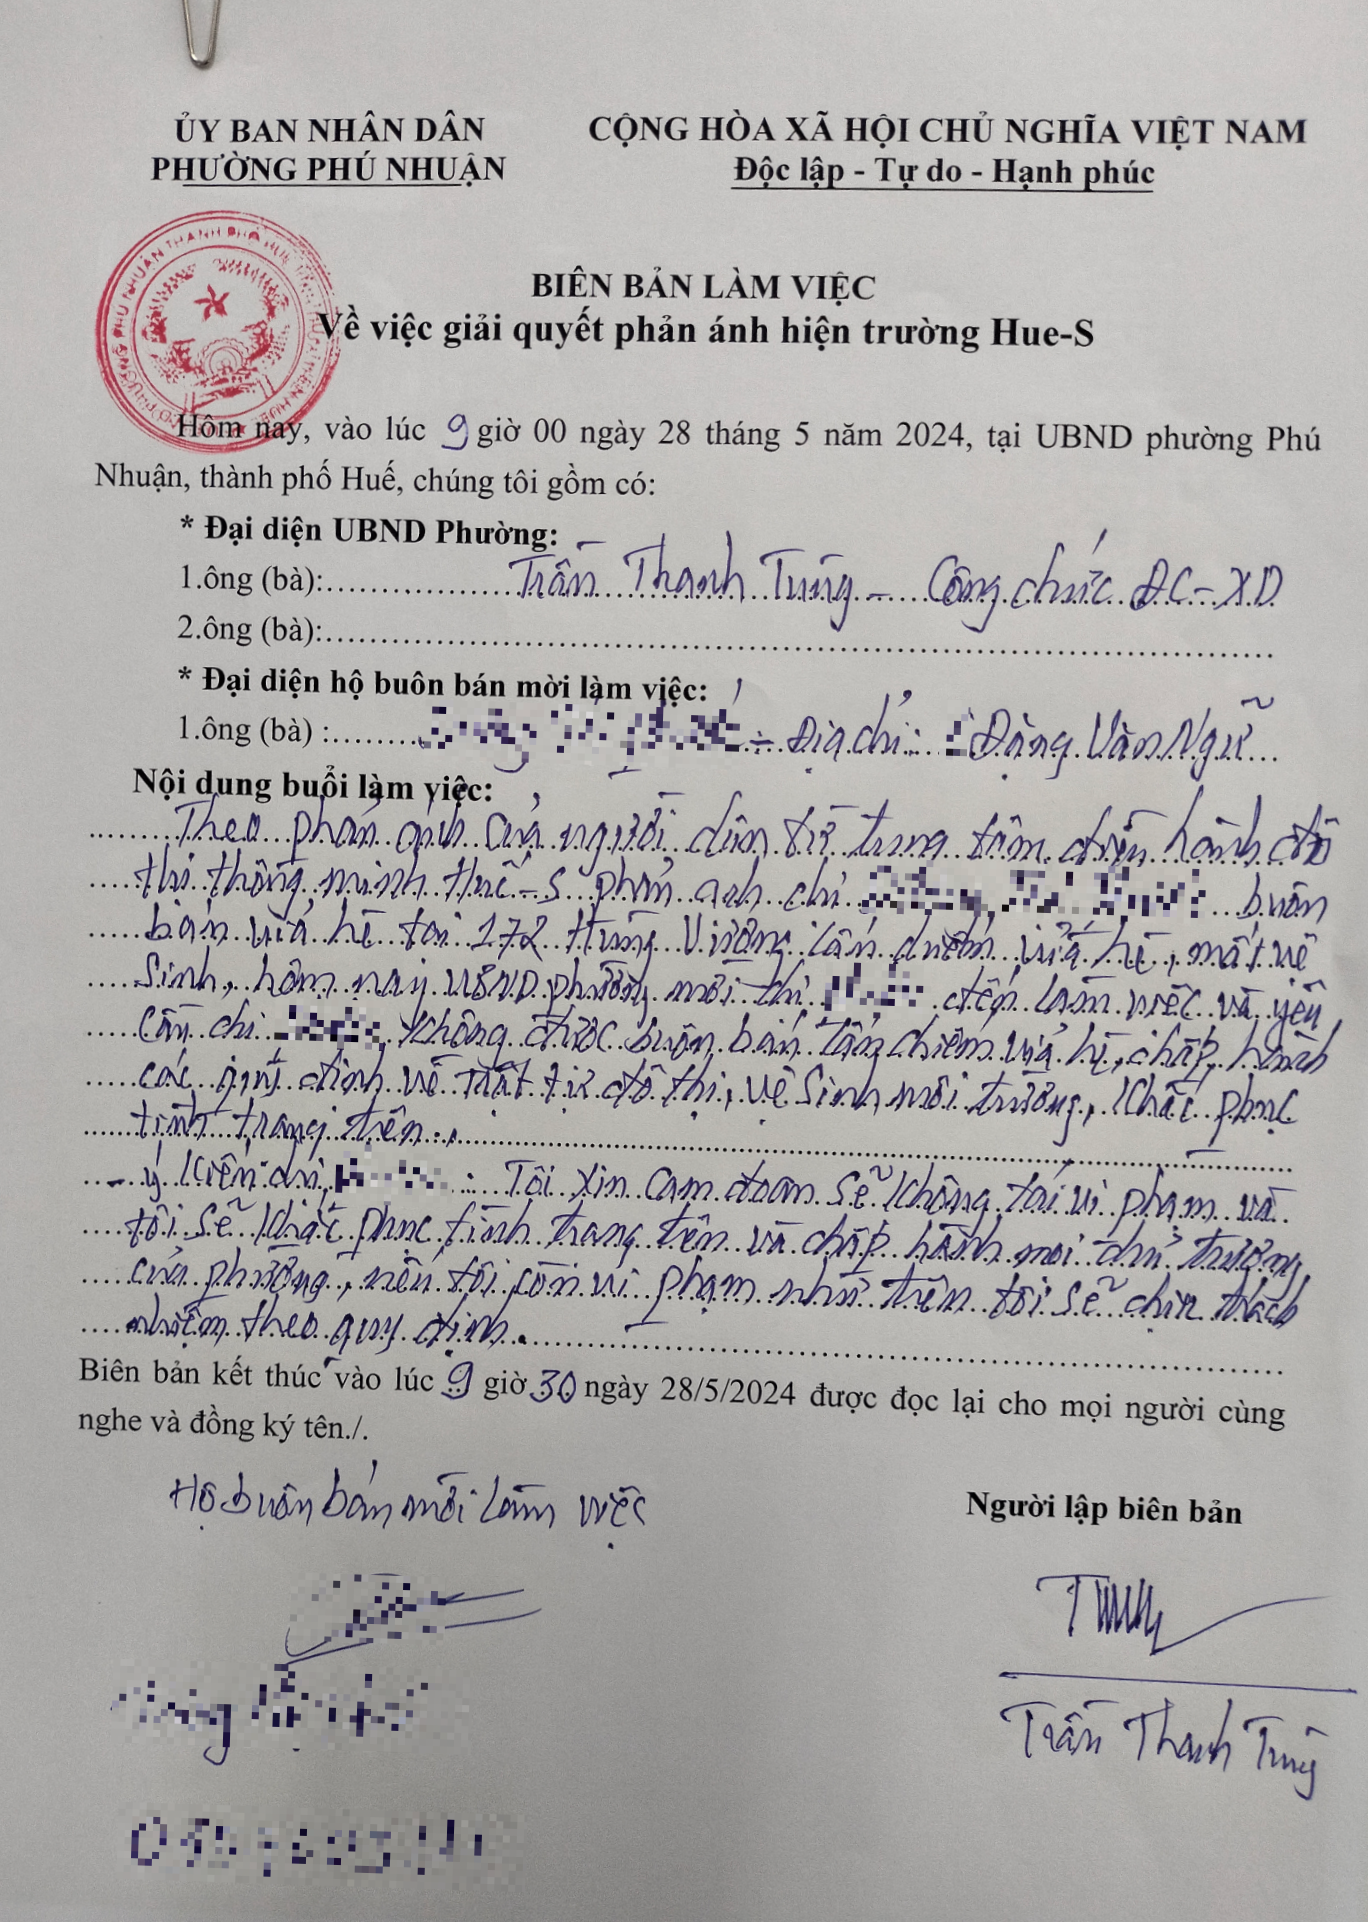 ỦY BAN NHÂN DÂN
PHƯỜNG PHÚ NHUẬN
CỘNG HÒA XÃ HỘI CHỦ NGHĨA VIỆT NAM
Độc lập - Tự do - Hạnh phúc
BIÊN BẢN LÀM VIỆC
Về việc giải quyết phản ánh hiện trường Hue-S
Hôm nay, vào lúc 9 giờ 00 ngày 28 tháng 5 năm 2024, tại UBND phường Phú
Nhuận, thành phố Huế, chúng tôi gồm có:
* Đại diện UBND Phường:
1.ông (bà): Trần Thanh Tùng - Công chức ĐC-XD
2.ông (bà):
* Đại diện hộ buôn bán mời làm việc:
1.ông (bà) : - Địa chỉ: Đặng Văn Ngữ
Nội dung buổi làm việc:
Theo phản ánh của người dân từ trung tâm điều hành đô
thị thông minh Huế-S phản ánh chị buôn
bán vỉa hè tại 172 Hùng Vương lấn chiếm vỉa hè, mất vệ
sinh, hôm nay UBND phường mời chị đến làm việc và yêu
cầu chị không được buôn bán lấn chiếm vỉa hè, chấp hành
các quy định về trật tự đô thị, vệ sinh môi trường, khắc phục
tình trạng trên.
- ý kiến chị : Tôi xin cam đoan sẽ không tái vi phạm và
tôi sẽ khắc phục tình trạng trên và chấp hành mọi chủ trương
của phường, nếu tôi còn vi phạm như trên tôi sẽ chịu trách
nhiệm theo quy định.
Biên bản kết thúc vào lúc 9 giờ 30 ngày 28/5/2024 được đọc lại cho mọi người cùng
nghe và đồng ký tên./.
Hộ buôn bán mời làm việc
Người lập biên bản
Trần Thanh Tùng